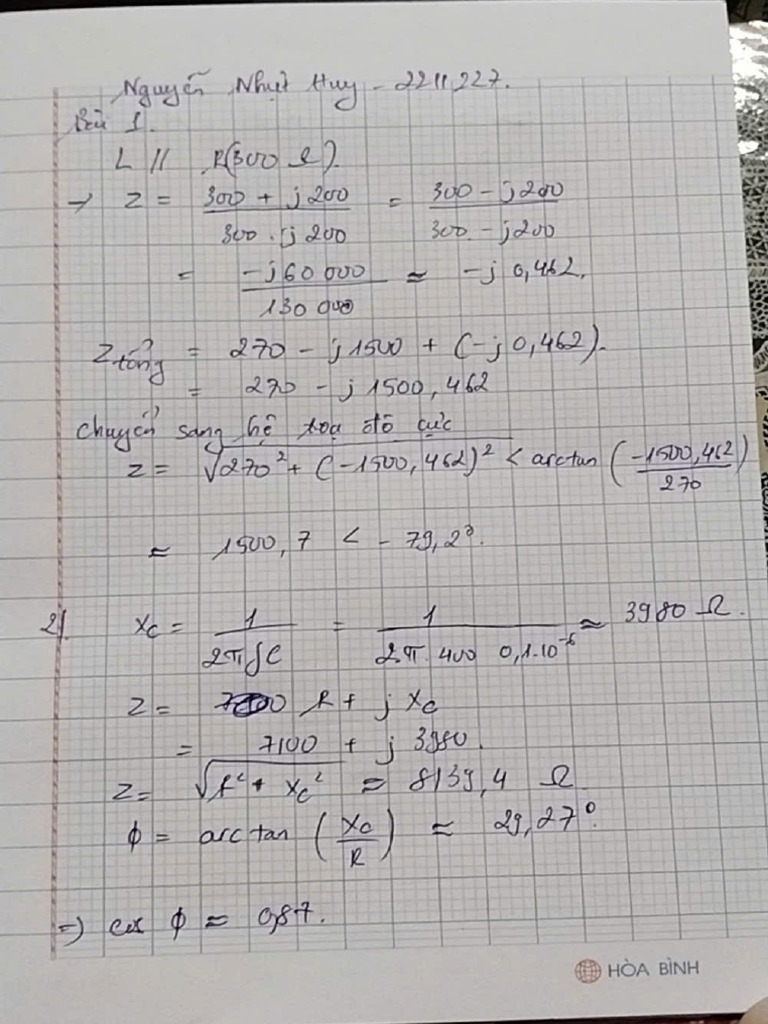 Nguyễn Nhựt Huy - 2211227.
Bài 1.
L // R(300 Ω).
→ Z = (300 + j200)/(300 . j200) = (300 - j200)/(300 - j200)
= (-j60 000)/(130 000) ≈ -j 0,462.
Z tổng = 270 - j1500 + (-j0,462).
= 270 - j 1500,462
chuyển sang hệ toạ độ cực
Z = √(270² + (-1500,462)²) < arctan (-1500,462/270)
≈ 1500,7 < - 79,2°.
2/. Xc = 1/(2πfC) = 1/(2.π.400 0,1.10⁻⁶) ≈ 3980 Ω.
Z = R + j Xc
= 7100 + j 3980.
Z = √(R² + Xc²) ≈ 8139,4 Ω
ϕ = arctan (Xc/R) ≈ 29,27°.
=) cos ϕ ≈ 0,87.
HÒA BÌNH